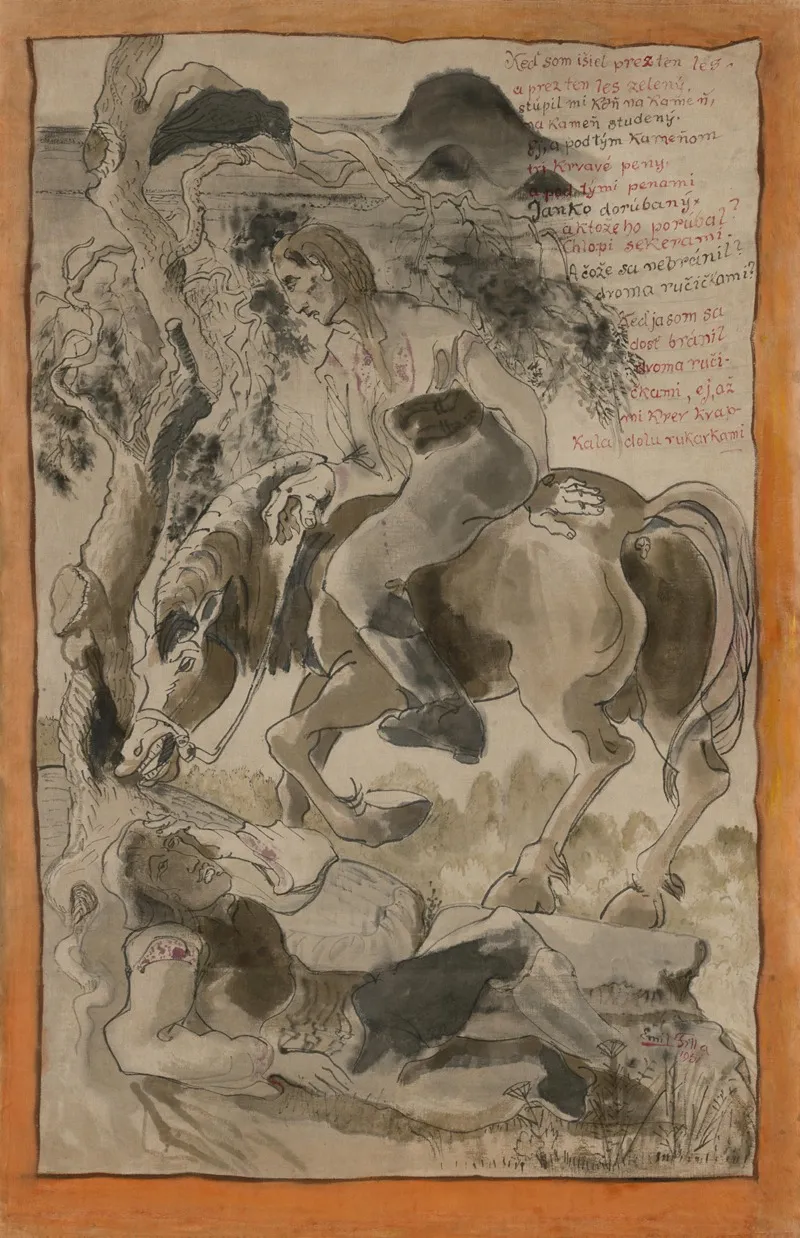 Keď som išiel prez ten les,
a prez ten les zelený,
stúpil mi kôň na kameň,
na kameň studený.
Ej, a pod tým kameňom
tri krvavé peny,
a pod tými penami
Janko dorúbaný.
a ktože ho porúbal?
Chlopi sekerami.
A čože sa nebránil?
dvoma ručičkami?
Keď ja som sa
dosť bránil
dvoma ruči-
čkami, ej, až
mi krev kvap-
kala dolu rukávkami
Emil Filla